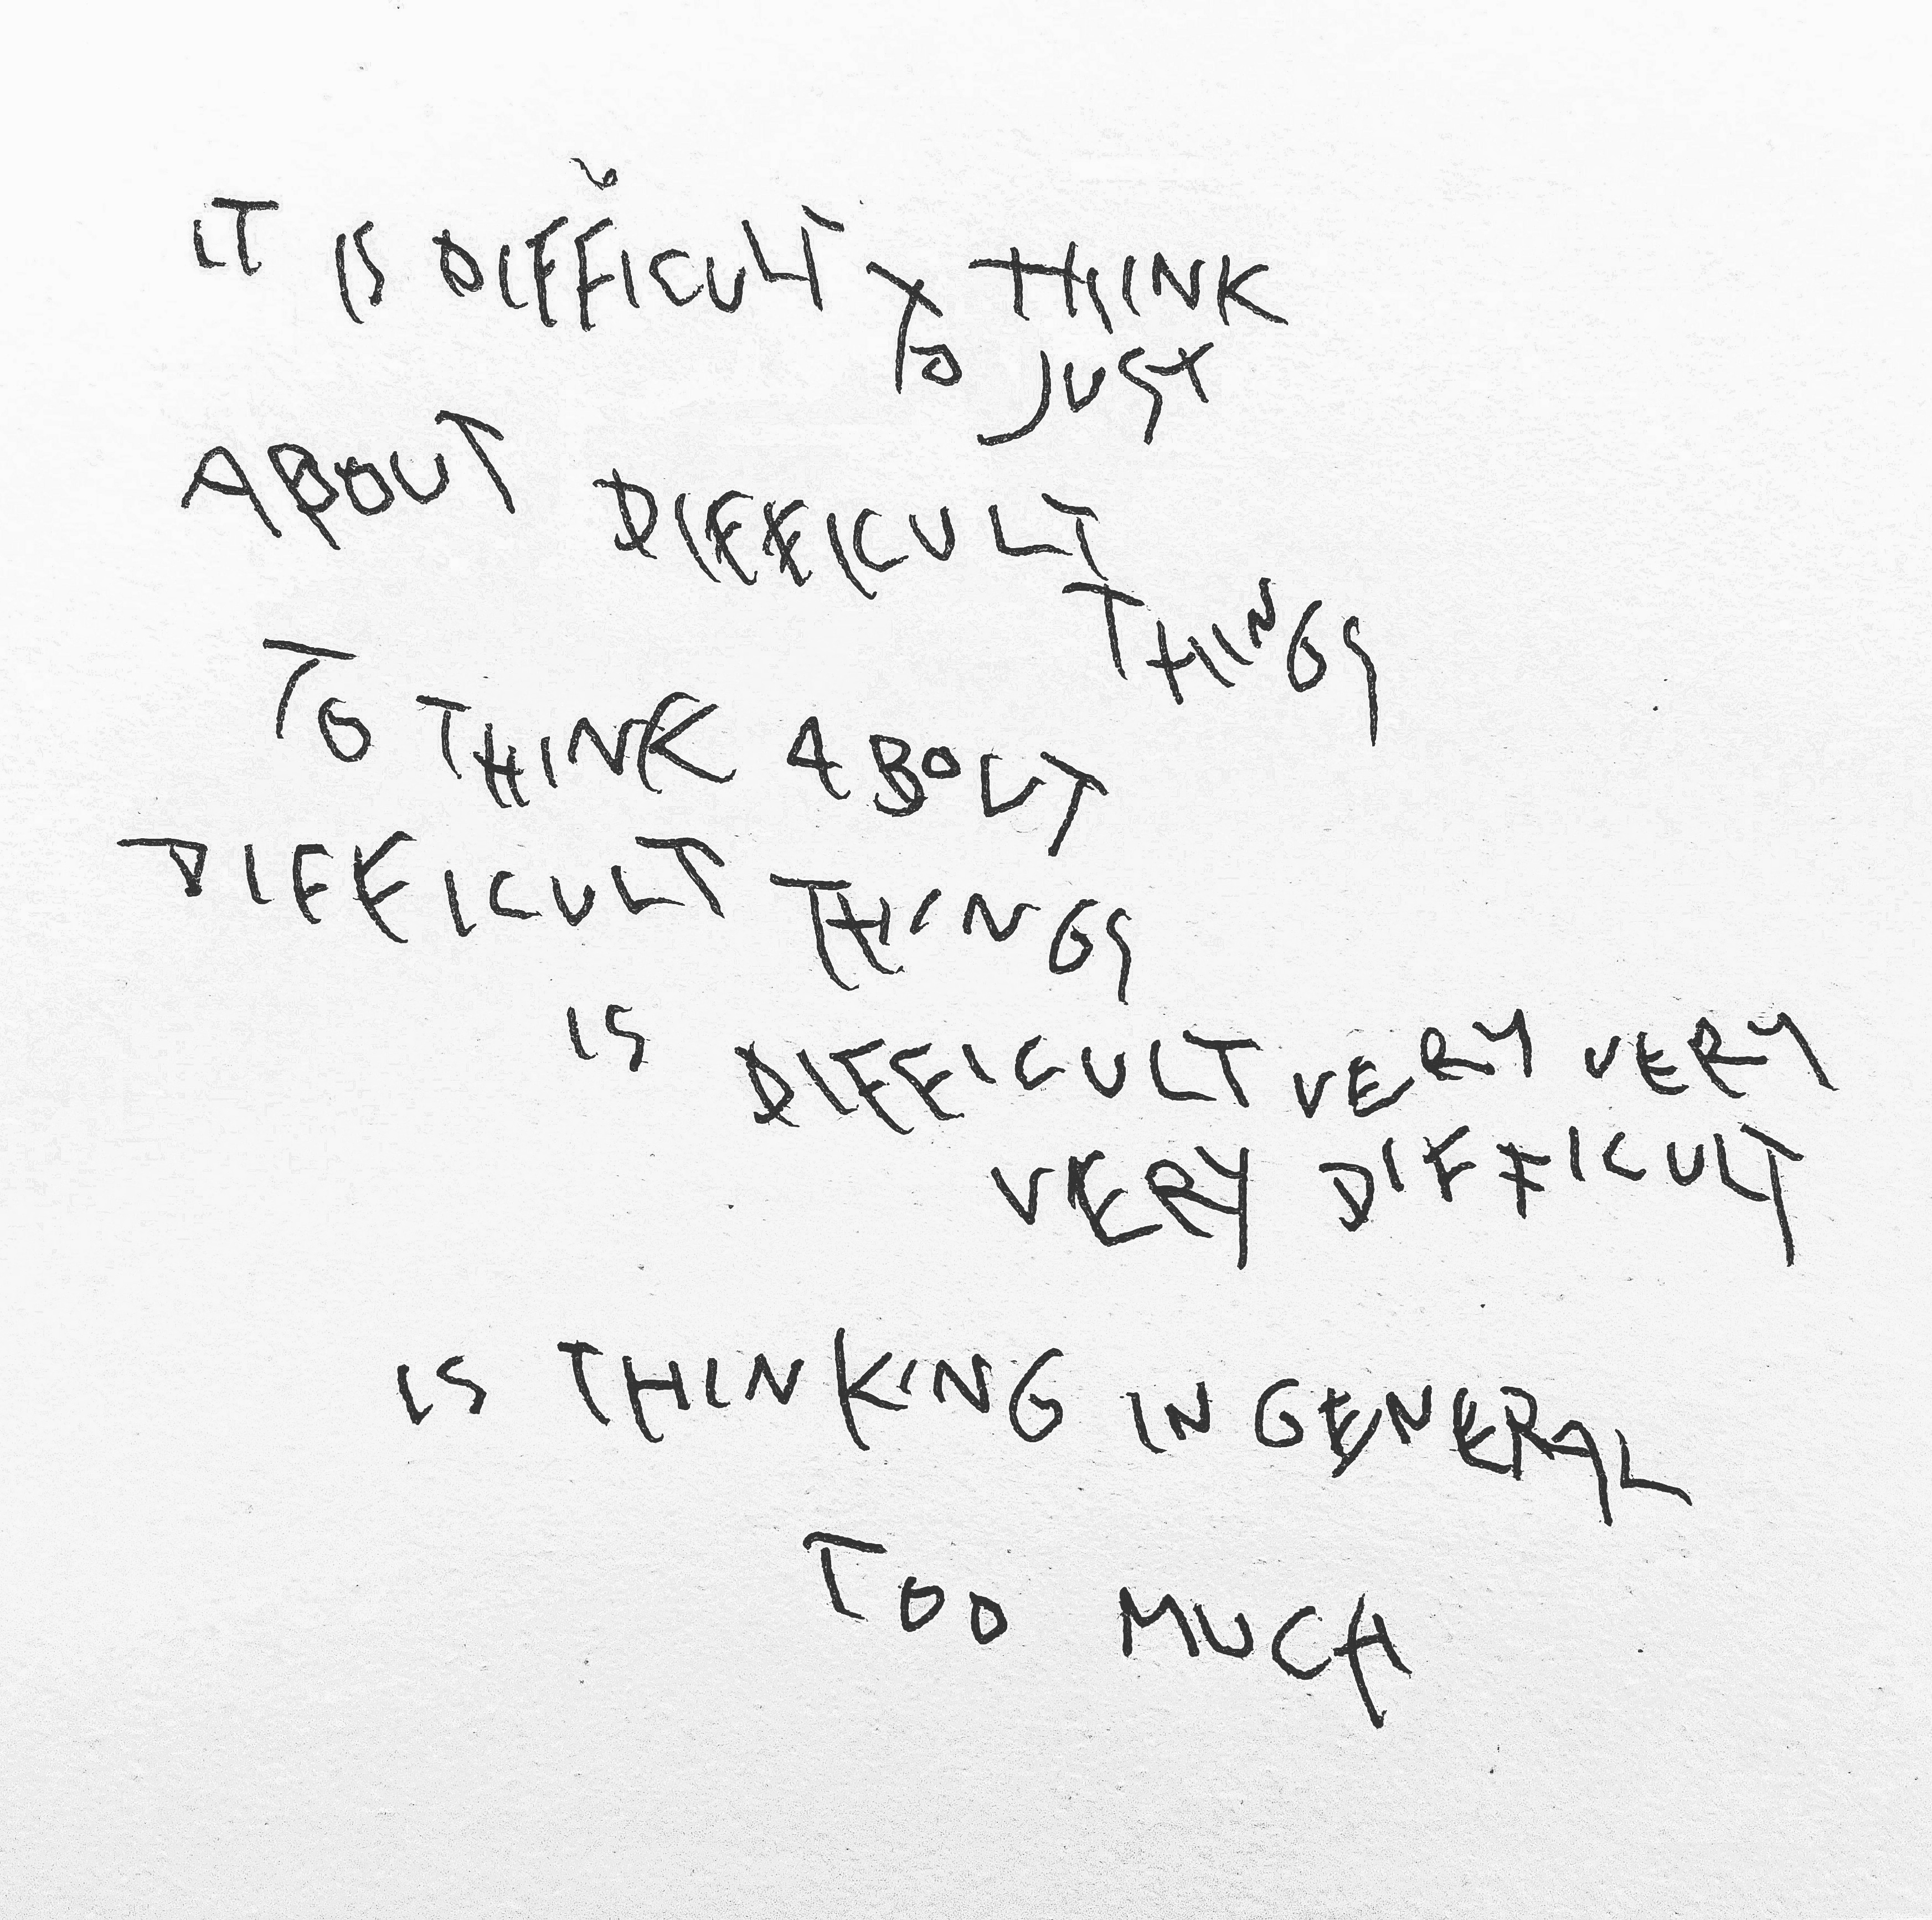 IT IS DIFFICULT TO THINK
JUST
ABOUT DIFFICULT
THINGS
TO THINK ABOUT
DIFFICULT THINGS
IS DIFFICULT VERY VERY
VERY DIFFICULT
IS THINKING IN GENERAL
TOO MUCH